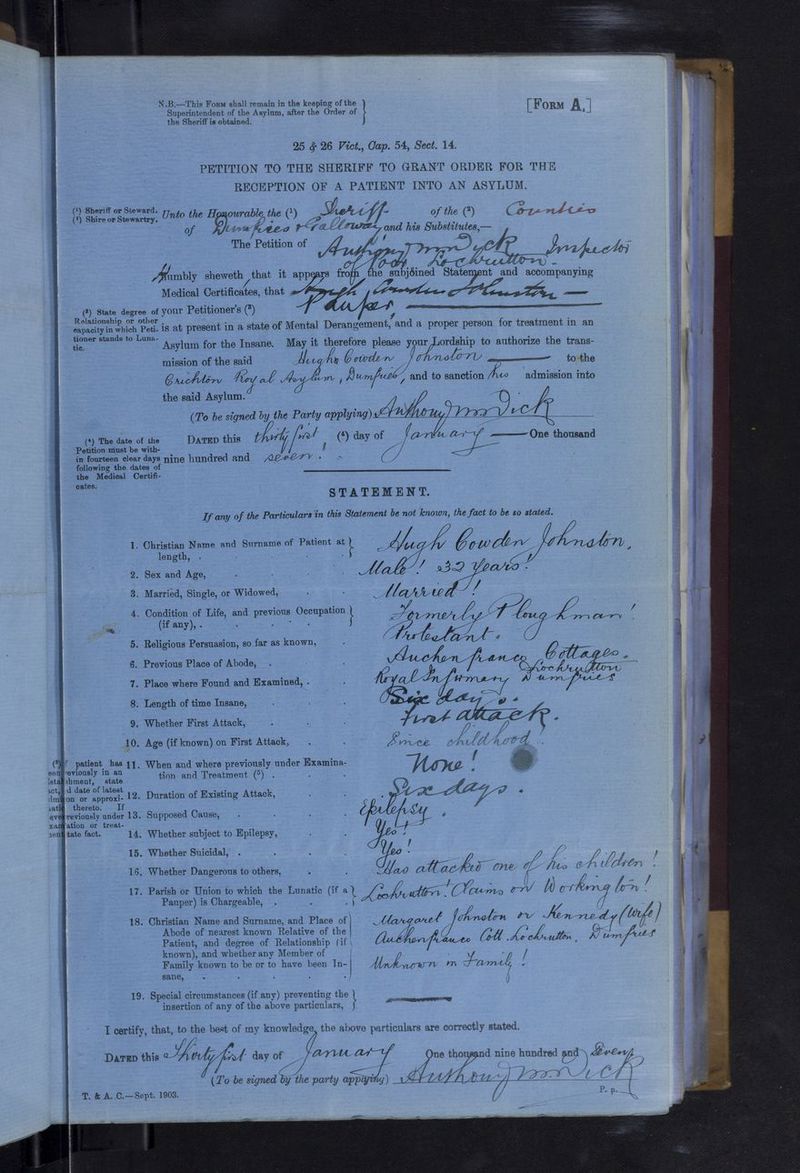 N.B.—This Form shall remain in the keeping of the
Superintendent of the Asylum, after the Order of
the Sheriff is obtained.
[Form A.]
25 & 26 Vict., Cap. 54, Sect. 14.
PETITION TO THE SHERIFF TO GRANT ORDER FOR THE
RECEPTION OF A PATIENT INTO AN ASYLUM.
(¹) Sheriff or Steward.
(²) Shire or Stewartry.
Unto the Honourable the (¹) Sheriff of the (²) Counties
of Dumfries & Galloway and his Substitutes,—
The Petition of Anthony Dick Inspector
of Poor Lochrutton
Humbly sheweth that it appears from the subjoined Statement and accompanying
Medical Certificates, that Hugh Cowden Johnston
(³) State degree of
Relationship or other
capacity in which Peti-
tioner stands to Luna-
tic.
your Petitioner's (³) Pauper
is at present in a state of Mental Derangement, and a proper person for treatment in an
Asylum for the Insane. May it therefore please your Lordship to authorize the trans-
mission of the said Hugh Cowden Johnston to the
Crichton Royal Asylum, Dumfries, and to sanction his admission into
the said Asylum.
(To be signed by the Party applying) Anthony Dick
(⁴) The date of the
Petition must be with-
in fourteen clear days
following the dates of
the Medical Certifi-
cates.
Dated this thirty first (⁴) day of January One thousand
nine hundred and seven.
STATEMENT.
If any of the Particulars in this Statement be not known, the fact to be so stated.
1. Christian Name and Surname of Patient at
length, . Hugh Cowden Johnston.
2. Sex and Age, Male! 32 Years!
3. Married, Single, or Widowed, Married!
4. Condition of Life, and previous Occupation
(if any), . Formerly Ploughman!
5. Religious Persuasion, so far as known, Protestant.
6. Previous Place of Abode, . Auchenfranco Cottages.
Lochrutton
7. Place where Found and Examined, . Royal Infirmary Dumfries
8. Length of time Insane, Six days.
9. Whether First Attack, First attack.
10. Age (if known) on First Attack, Since childhood!
patient has
eviously in an
hment, state
d date of latest
on or approxi-
thereto. If
reviously under
ation or treat-
tate fact.
11. When and where previously under Examina-
tion and Treatment (⁵) . None!
12. Duration of Existing Attack, Six days.
13. Supposed Cause, Epilepsy.
14. Whether subject to Epilepsy, Yes!
15. Whether Suicidal, . Yes!
16. Whether Dangerous to others, Has attacked one of his children!
17. Parish or Union to which the Lunatic (if a
Pauper) is Chargeable, . Lochrutton! Claims on Workington!
18. Christian Name and Surname, and Place of
Abode of nearest known Relative of the
Patient, and degree of Relationship (if
known), and whether any Member of
Family known to be or to have been In-
sane,
Margaret Johnston or Kennedy (Wife)
Auchenfranco Cott. Lochrutton, Dumfries
Unknown in Family!
19. Special circumstances (if any) preventing the
insertion of any of the above particulars,
I certify, that, to the best of my knowledge, the above particulars are correctly stated.
Dated this Thirty first day of January One thousand nine hundred and Seven
(To be signed by the party applying) Anthony Dick
T. & A. C.—Sept. 1903.
P.